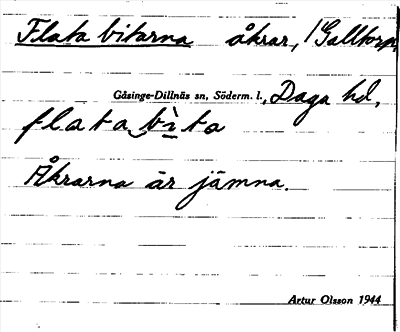 Flata bitarna åkrar, 1 Galltorp
Gåsinge-Dillnäs sn, Söderm. l., Daga hd,
flata bìta
Åkrarna är jämna.
Artur Olsson 1944